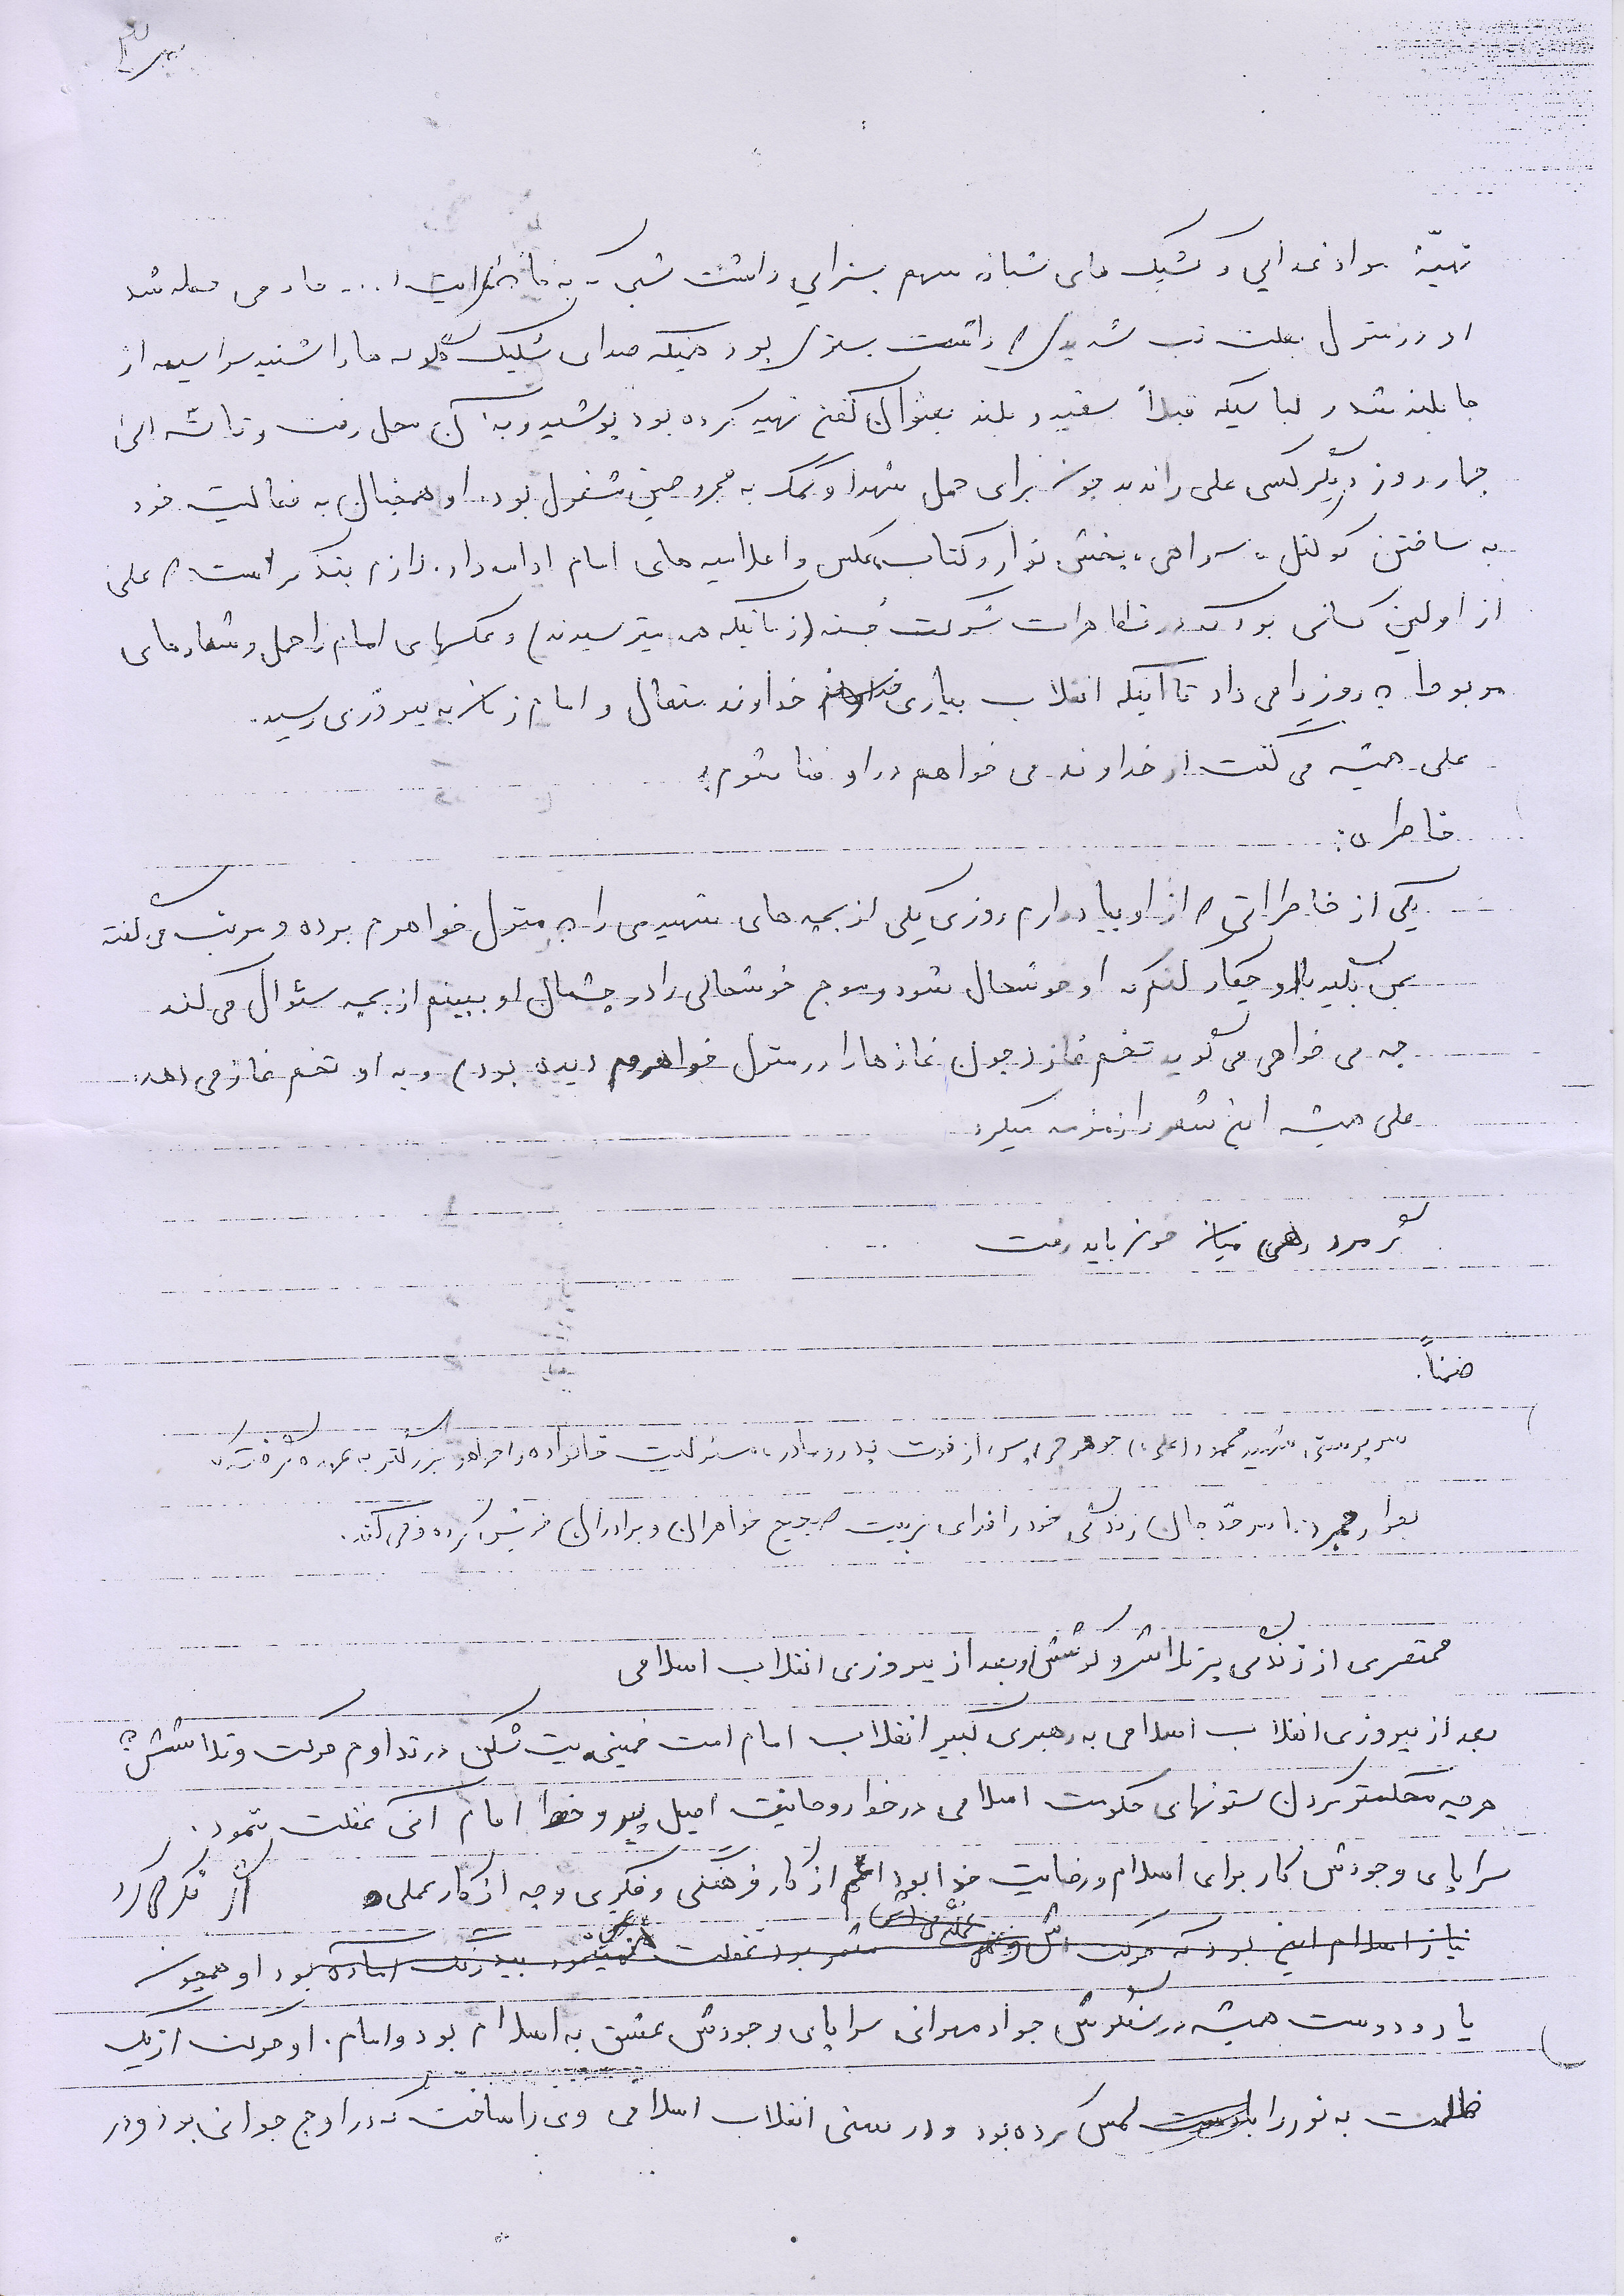 تهیّهٔ مواد غذایی و کشیک های شبانه سهم بسزایی داشت شبی که به حمله شد
او در منزل بعلت تب شدیدی که داشت بستری بود همینکه صدای شلیک گلوله ها را شنید سراسیمه از
جا بلند شد و لباسیکه قبلاً سفید و بلند بعنوان کفن تهیه کرده بود پوشید و به آن محل رفت و تا سه الی
چهار روز دیگر کسی علی را ندید چون برای حمل شهدا و کمک به مجروحین مشغول بود. او همچنان به فعالیت خود
به ساختن کوکتل، سه راهی، پخش نوار و کتاب، عکس و اعلامیه های امام ادامه داد. لازم بتذکر است که علی
از اولین کسانی بود که در تظاهرات شرکت جسته (زمانیکه همه میترسیدند) و عکسهای امام را حمل و شعارهای
مربوط به روز را می داد تا اینکه انقلاب بیاری خداوند متعال و امام زمان به پیروزی رسید.
علی همیشه می گفت از خداوند می خواهم در او فنا شوم.
خاطره:
یکی از خاطراتی که از او بیاد دارم روزی یکی از بچه های شهید می را به منزل خواهرم برده و مرتب می گفته
بمن بگیید با او چیکار کنم که او خوشحال شود و موج خوشحالی را در چشمان او ببینم از بچه سئوال می کند
چه می خواهی می گوید تخم غاز (چون غازها را در منزل خواهرم دیده بود) و به او تخم غاز می دهد.
علی همیشه این شعر را زمزمه میکرد
گر مرد رهی میان خون باید رفت ...
ضمناً.
سرپرستی شهید محمود (علی) جوهرچی پس از فوت پدر و مادر، مسئولیت خانواده را خواهر بزرگتر به عهده گرفت که
زندگی خود را فدای تربیت صحیح خواهران و برادران خویش کرده و می کند.
مختصری از زندگی پر تلاش و کوشش او بعد از پیروزی انقلاب اسلامی
بعد از پیروزی انقلاب اسلامی به رهبری کبیر انقلاب امام امت خمینی بت شکن در تداوم حرکت و تلاشش به
هر چه محکمتر کردن ستونهای حکومت اسلامی در خط روحانیت اصیل پیرو خط امام آنی غفلت ننمود.
سراپای وجودش کار برای اسلام و رضایت خدا بود اعم از کار فرهنگی و فکری و چه از کار عملی اگر فکر می کرد
نیاز اسلام این بود که حرکت غفلت نمینمود بیدرنگ آماده بود او همچون
یار و دوست همیشه در سنگرش جواد مهرانی سراپای وجودش عشق به اسلام بود و امام. او حرکت از یک
ظلمت به نور را لمس کرده بود و در سنی انقلاب اسلامی وی را ساخت که در اوج جوانی بود و در